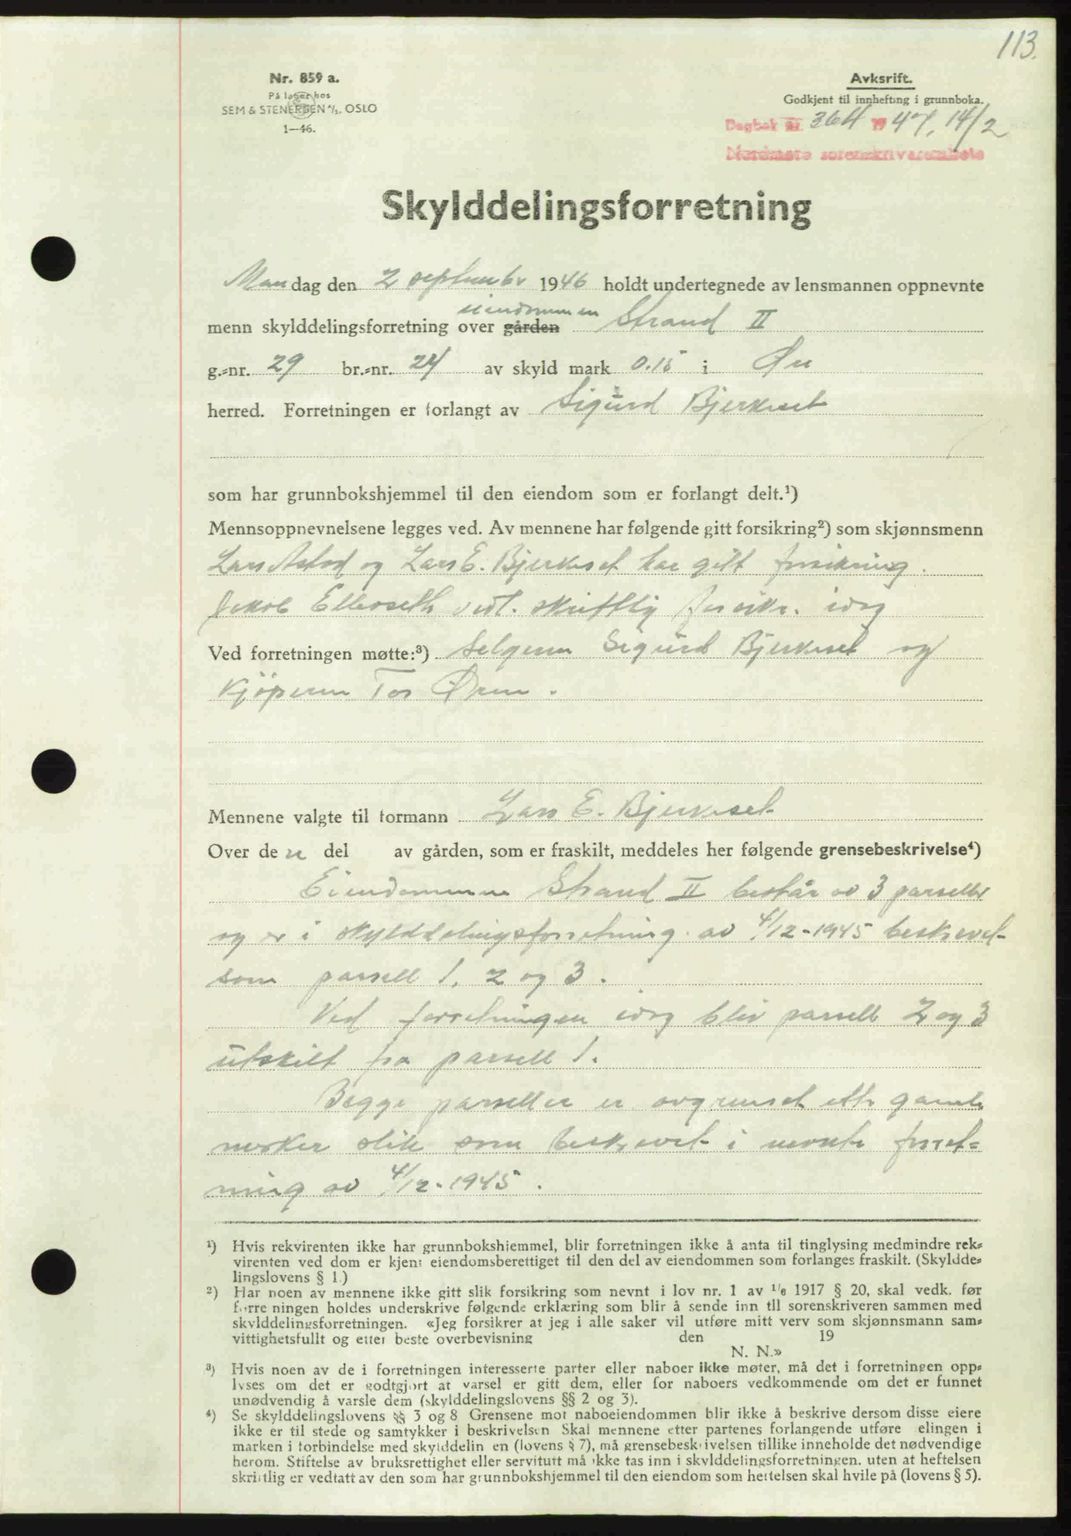 113.
Nr. 859 a.
På lager hos
SEM & STENERSEN A/S, OSLO
1—46.
Avksrift.
Godkjent til innhefting i grunnboka.
Dagbok nr. 364 1947, 14/2
Nordmøre sorenskriverembete
Skylddelingsforretning
Mandag den 2 september 1946 holdt undertegnede av lensmannen oppnevnte
eiendommen
menn skylddelingsforretning over gården Strand II
g.=nr. 29 br.=nr. 24 av skyld mark 0.15 i Øre
herred. Forretningen er forlangt av Sigurd Bjerkeset
som har grunnbokshjemmel til den eiendom som er forlangt delt.¹)
Mennsoppnevnelsene legges ved. Av mennene har følgende gitt forsikring²) som skjønnsmenn
Lars og Lars E. Bjerkeset har gitt forsikring.
Jakob vedl. skriftlig forsikr. idag
Ved forretningen møtte:³) Selgeren Sigurd Bjerkeset og
kjøperen Tor
Mennene valgte til formann Lars E. Bjerkeset
Over den del av gården, som er fraskilt, meddeles her følgende grensebeskrivelse⁴)
Eiendommen Strand II består av 3 parseller
og er i skylddelingsforretning av 4/12-1945 beskrevet
som parsell 1, 2 og 3.
Ved forretningen idag blir parsell 2 og 3
utskilt fra parsell 1.
Begge parseller er avgrenset etter gamle
merker slik som beskrevet i nevnte forret=
ning av 4/12-1945.
¹) Hvis rekvirenten ikke har grunnbokshjemmel, blir forretningen ikke å anta til tinglysing medmindre rek=
virenten ved dom er kjent eiendomsberettiget til den del av eiendommen som forlanges fraskilt. (Skyldde=
lingslovens § 1.)
²) Har noen av mennene ikke gitt slik forsikring som nevnt i lov nr. 1 av 1/6 1917 § 20, skal vedk. før
forretningen holdes underskrive følgende erklæring som blir å sende inn til sorenskriveren sammen med
skylddelingsforretningen. «Jeg forsikrer at jeg i alle saker vil utføre mitt verv som skjønnsmann sam=
vittighetsfullt og etter beste overbevisning den 19
N. N.»
³) Hvis noen av de i forretningen interesserte parter eller naboer ikke møter, må det i forretningen opp=
lyses om det er godtgjort at varsel er gitt dem, eller for naboers vedkommende om det er funnet
unødvendig å varsle dem (skylddelingslovens §§ 2 og 3).
⁴) Se skylddelingslovens §§ 3 og 8 Grensene mot naboeiendommen blir ikke å beskrive dersom disse eiere
ikke er til stede og samtykker i beskrivelsen Skal mennene etter partenes forlangende utføre elingen i
marken i forbindelse med skylddelin en (lovens § 7), må grensebeskrivelsen tillike inneholde det nødvendige
herom. Stiftelse av bruksrettighet eller servitutt må ikke tas inn i skylddelingsforretningen, uten at heftelsen
skriftlig er vedtatt av den som har grunnbokshjemmel til den eiendom som heftelsen skal hvile på (lovens § 5).